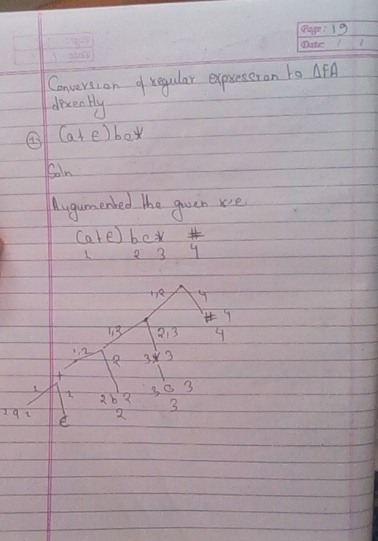 Page: 19
Date: / /
Conversion of regular expression to DFA
directly
① (a+ε)bc*
Soln
Augumented the given r.e.
(a+ε) bc* #
1 2 3 4
1,2 4
# 4
4
1,2 2,3
1,2 2 3 * 3
+ 2 b 2 3 c 3
2 3
1 1
1 a 1 ε